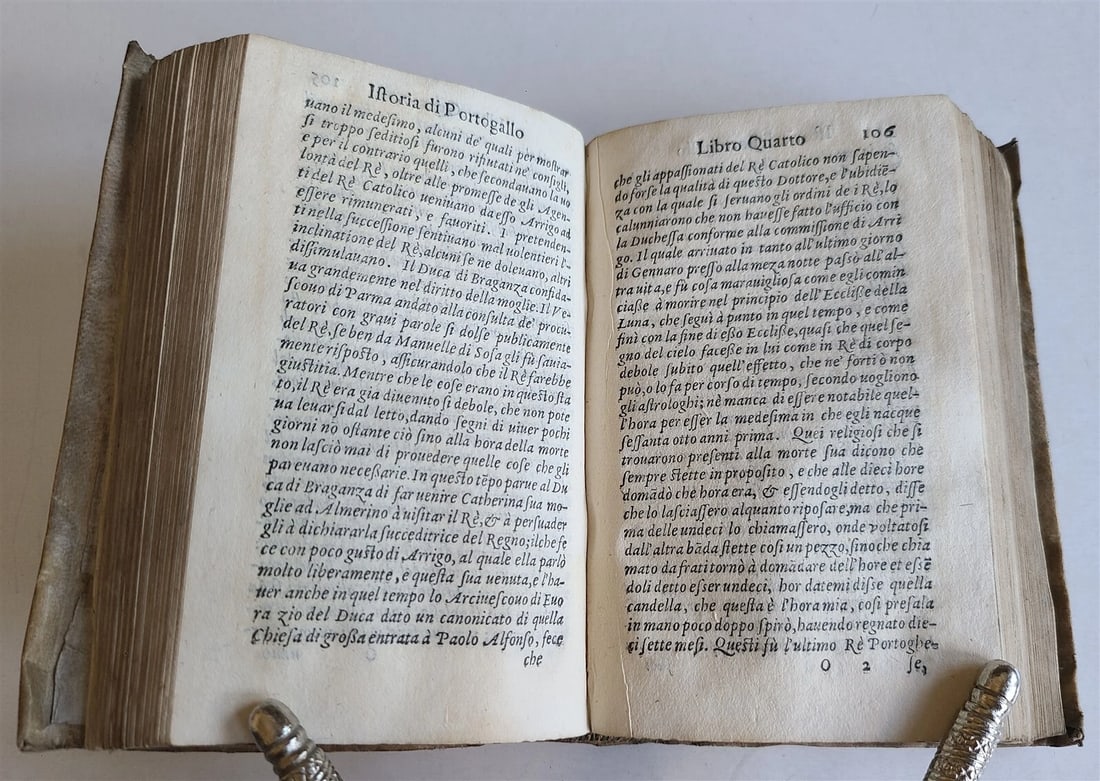 Iſtoria di Portogallo
uano il medeſimo, alcuni de' quali per moſtrar
ſi troppo ſeditioſi furono rifiutati ne' conſigli,
e per il contrario quelli, che ſecondauano la uo
lontà del Rè, oltre alle promeſſe de gli Agen-
ti del Rè Catolico ueniuano da eſſo Arrigo ad
eſſere rimunerati, e fauoriti. I pretenden-
ti nella ſucceſſione ſentiuano mal uolentieri l'-
inclinatione del Rè, alcuni ſe ne doleuano, altri
diſſimulauano. Il Duca di Braganza confida-
ua grandemente nel diritto della moglie. Il Ve-
ſcouo di Parma andato alla conſulta de' procu-
ratori con graui parole ſi dolſe publicamente
del Rè, ſe ben da Manuelle di Soſa gli fù ſauia-
mente riſpoſto, aſſicurandolo che il Rè farebbe
giuſtitia. Mentre che le coſe erano in queſto ſta
to, il Rè era già diuenuto ſi debole, che non pote
ua leuarſi dal letto, dando ſegni di uiuer pochi
giorni no oſtante ciò ſino alla hora della morte
non laſciò mai di prouedere quelle coſe che gli
pareuano neceßarie. In queſto tẽpo parue al Du
ca di Braganza di far uenire Catherina ſua mo-
glie ad Almerino à uiſitar il Rè, & à perſuader
gli à dichiararla ſucceditrice del Regno; ilche fe
ce con poco guſto di Arrigo, al quale ella parlò
molto liberamente, e queſta ſua uenuta, e l'ha-
uer anche in quel tempo lo Arciueſcouo di Euo
ra zio del Duca dato un canonicato di quella
Chieſa di großa entrata à Paolo Alfonſo, fece
che
Libro Quarto 106
che gli appaſſionati del Rè Catolico non ſapen-
do forſe la qualità di queſto Dottore, e l'ubidiẽ-
za con la quale ſi ſeruano gli ordini de i Rè, lo
calunniarono che non haueſſe fatto l'ufficio con
la Ducheſſa conforme alla commiſſione di Arri
go. Il quale arriuato in tanto all'ultimo giorno
di Gennaro preſſo alla meza notte paſsò all'al-
tra uita, e fù coſa marauiglioſa come egli comin
ciaße à morire nel principio dell'Eccliße della
Luna, che ſeguì à punto in quel tempo, e come
finì con la fine di eßo Eccliße, quaſi che quel ſe-
gno del cielo faceße in lui come in Rè di corpo
debole ſubito quell'effetto, che ne' forti ò non
può, o lo fa per corſo di tempo, ſecondo uogliono
gli aſtrologhi; nè manca di eſſere notabile quel-
l'hora per eſſer la medeſima in che egli nacque
ſeſſanta otto anni prima. Quei religioſi che ſi
trouarono preſenti alla morte ſua dicono che
ſempre ſtette in propoſito, e che alle dieci hore
domãdò che hora era, & eſſendogli detto, diſſe
che lo laſciaſſero alquanto ripoſare, ma che pri-
ma delle undeci lo chiamaſſero, onde voltatoſi
dall'altra bãda ſtette coſi un pezzo, ſinoche chia
mato da frati tornò à domãdare dell'hore et eſſẽ
doli detto eſſer undeci, hor datemi diſſe quella
candella, che queſta è l'hora mia, coſi preſala
in mano poco doppo ſpirò, hauendo regnato die-
ci ſette meſi. Queſti fù l'ultimo Rè Portoghe-
O 2 ſe,